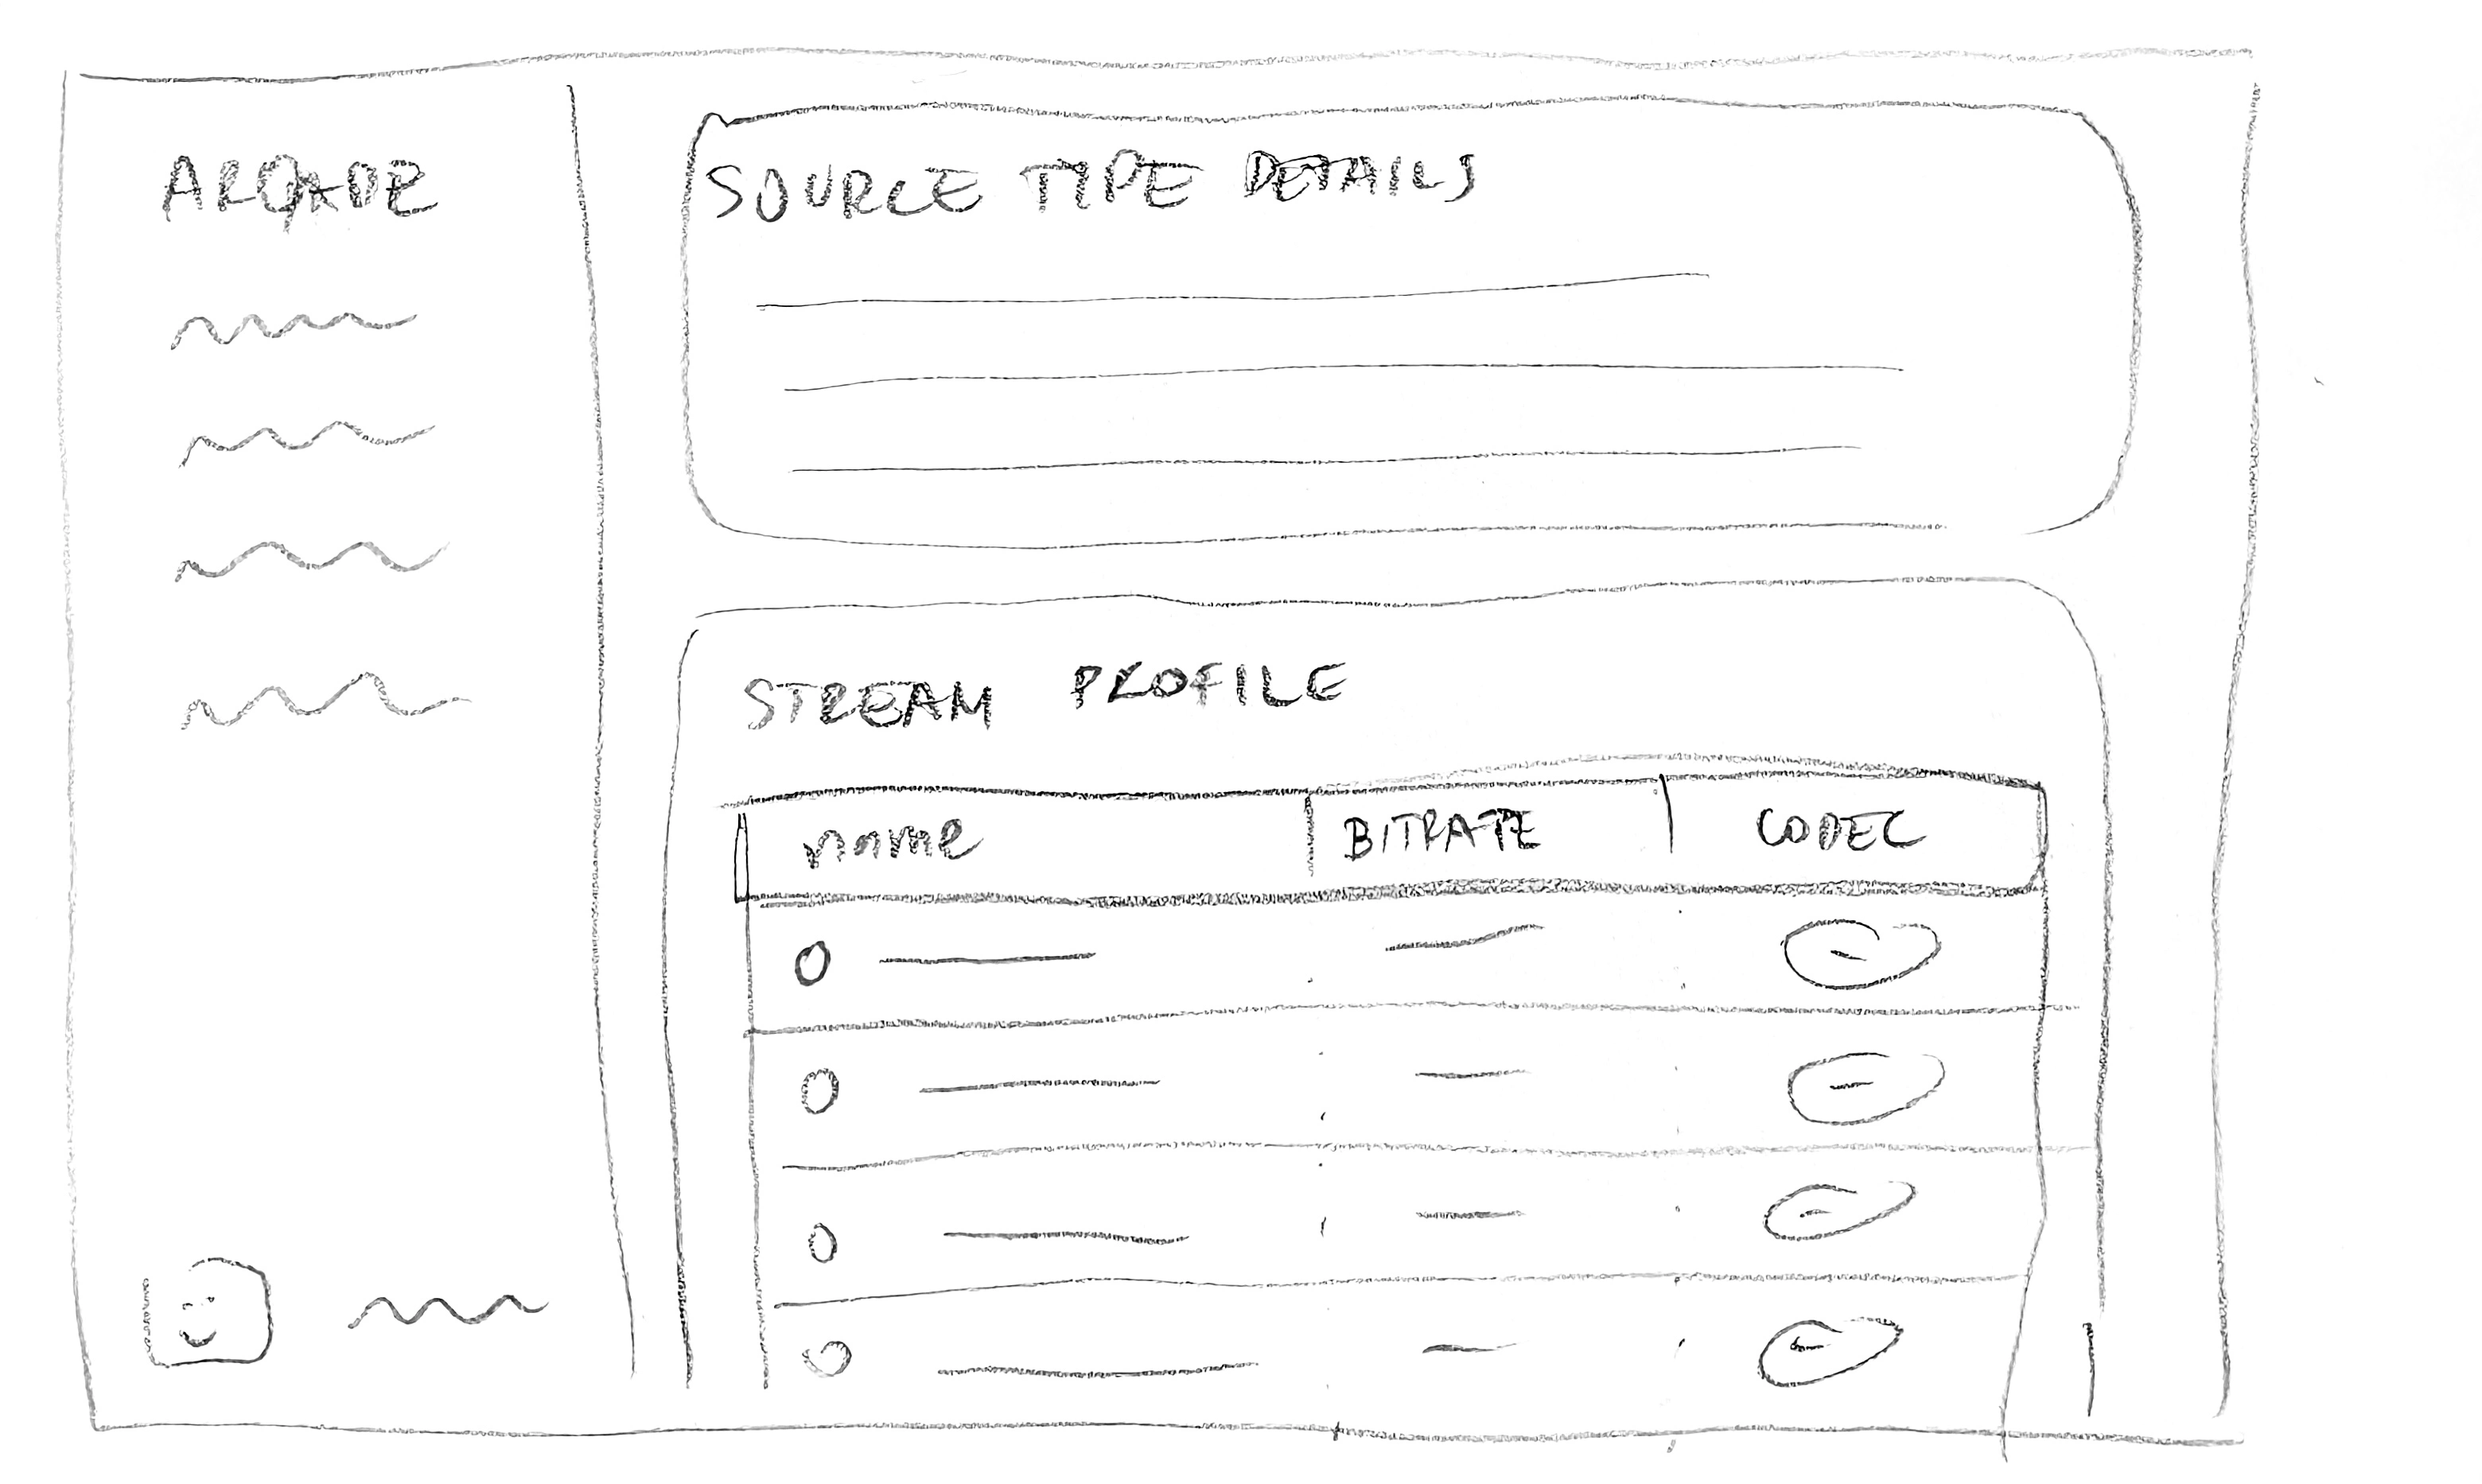 ARCADE
SOURCE TYPE DETAILS
STREAM PROFILE
name BITRATE CODEC